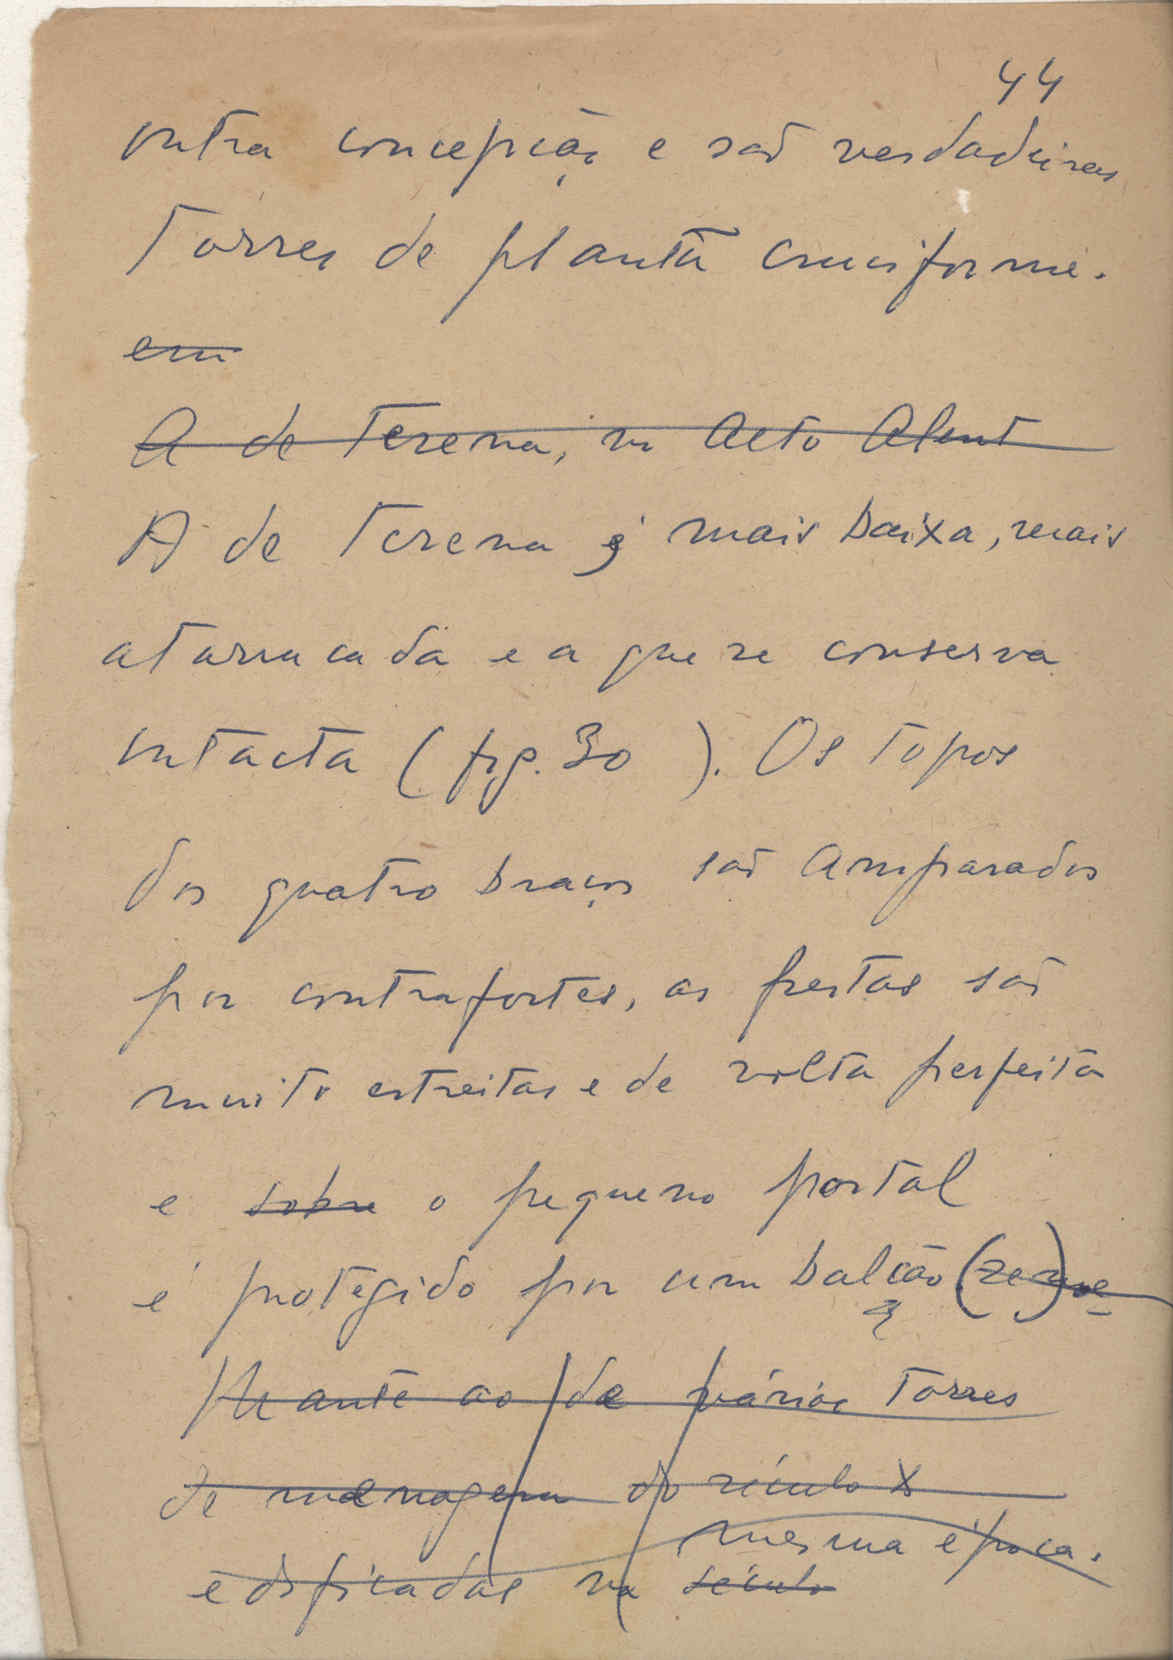 44
outra concepção e são verdadeiras
Torres de planta cruciforme.
em
A de Terena, no Aeto Alent
A de Terena é mais baixa, mais
atarracada e a que se conserva
intacta (fig. 30 ). Os topos
dos quatro braços são amparados
por contrafortes, as frestas são
muito estreitas e de volta perfeita
e sobre o pequeno portal
é protegido por um balcão (
ao de várias Torres
de menagem do século X
mesma época.
edificadas na século